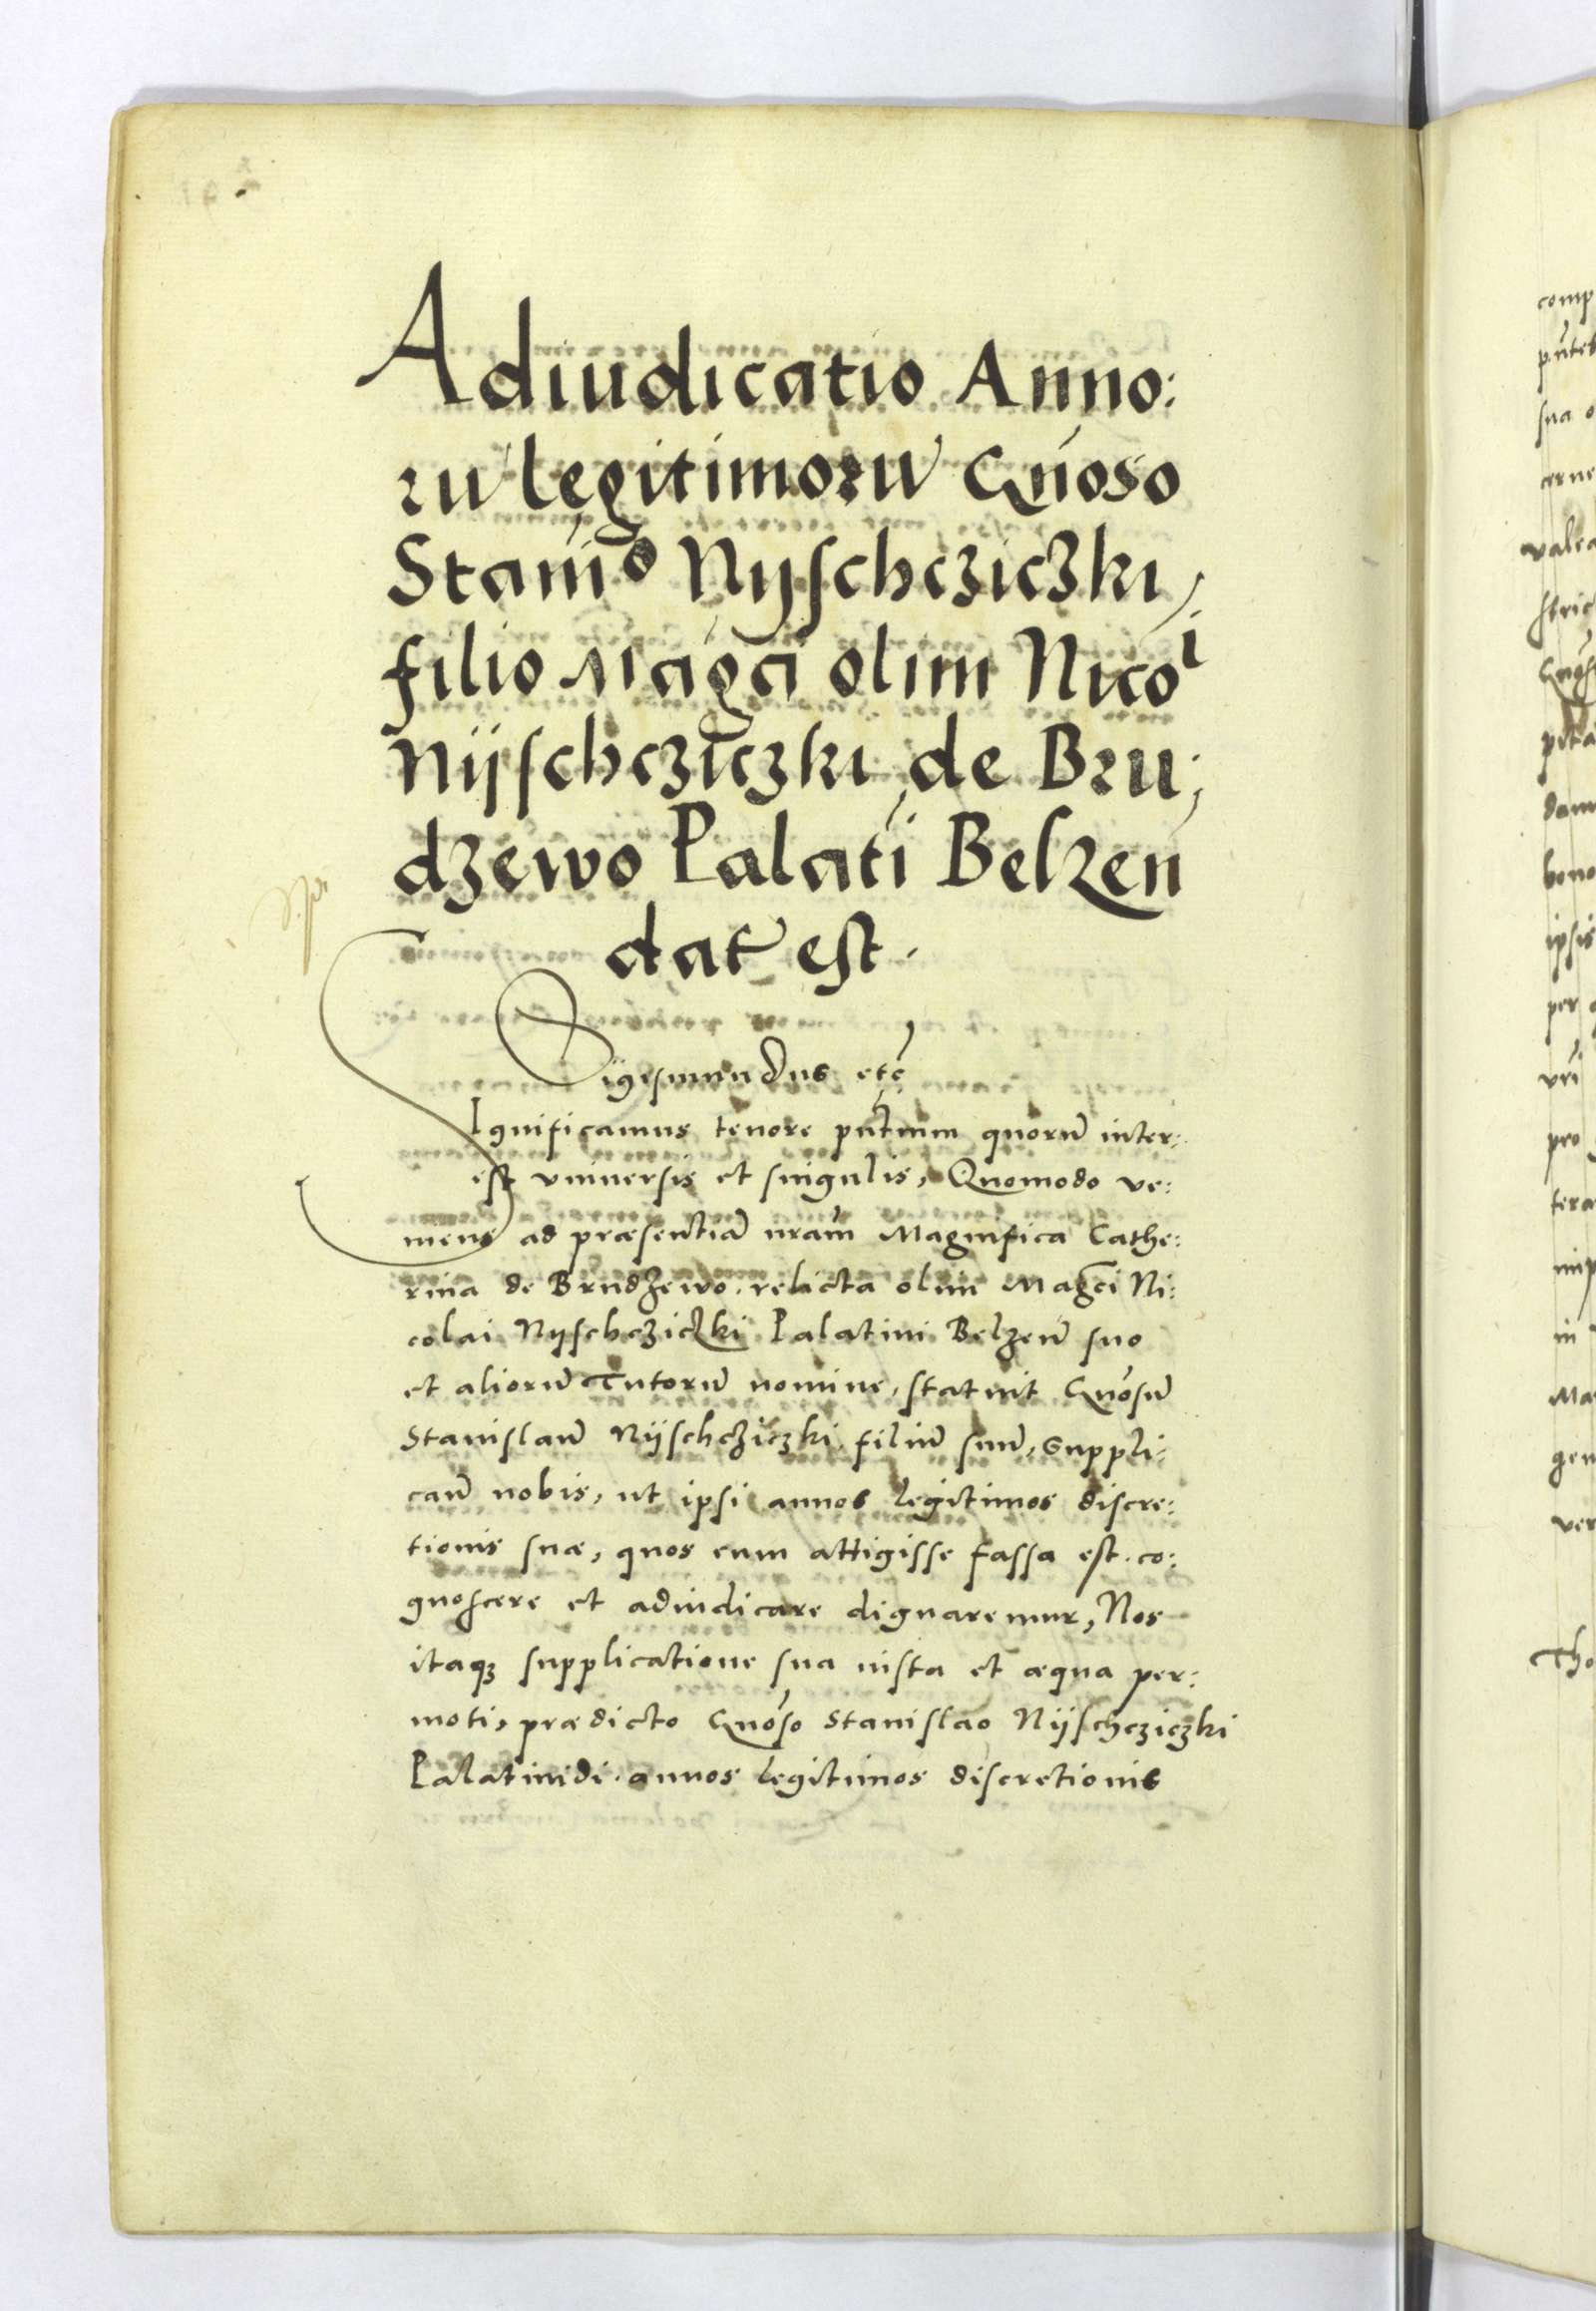 Adiudicatio Anno:
rū legitimorū Gn̄oso
Stanīo Nijschcziczki,
filio Magci olim Nicoi
Nijschcziczki de Bru:
dzewo Palati Belzen̄
dat est.
Sigismundus etc̄
Significamus tenore pn̄tium quorū inter:
est universis et singulis, Quomodo ve:
niens ad præsentiā nrām Magnifica Cathe:
rina de Brudzewo. relicta olim Magci Ni:
colai Nijschcziczki Palatini Belzen̄ suo
et aliorū Tutorū nomine, statuit Gn̄osū
Stanislaū Nijschcziczki, filiū suū, Suppli:
cān nobis, ut ipsi annos legitimos discre:
tionis suæ, quos eum attigisse fassa est. co:
gnoscere et adiudicare dignaremur, Nos
itaqꝫ supplicatione sua iusta et æqua per:
moti, prædicto Gn̄oso Stanislao Nijschcziczki
Palatinidi. annos legitimos discretionis